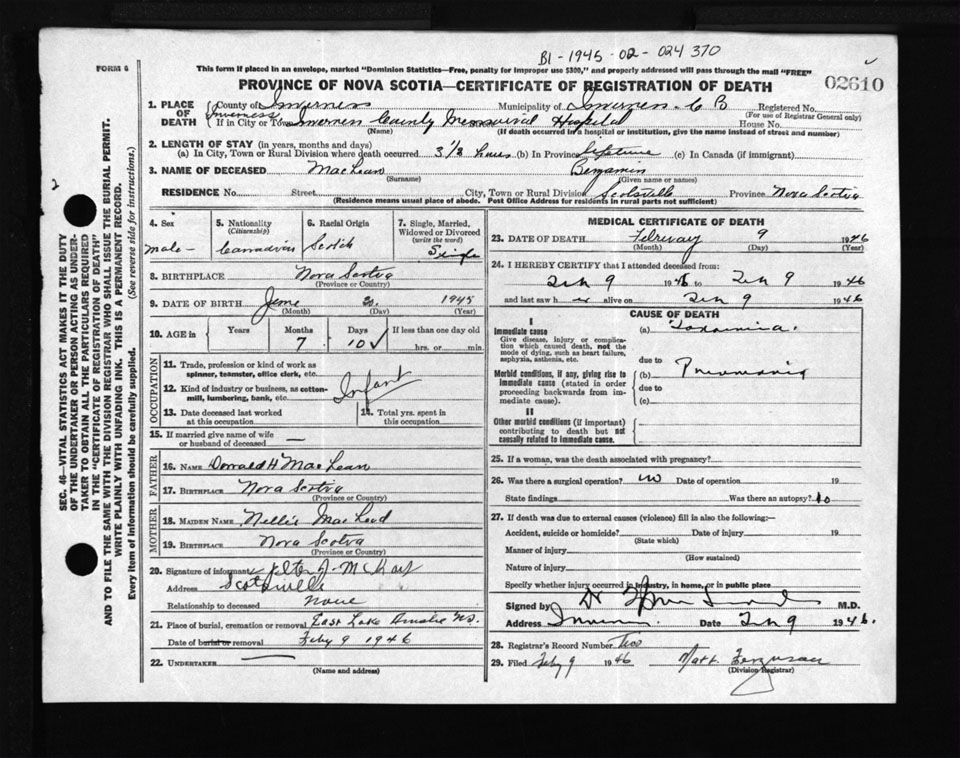 B1-1945-02-024370
FORM 6
This form if placed in an envelope, marked "Dominion Statistics—Free, penalty for improper use $300," and properly addressed will pass through the mail "FREE"
PROVINCE OF NOVA SCOTIA—CERTIFICATE OF REGISTRATION OF DEATH
02610
1. PLACE OF DEATH County of Inverness Municipality of Inverness C B Registered No.
(For use of Registrar General only)
Inverness
If in City or Town Inverness County Memorial Hospital House No.
(Name) (If death occurred in a hospital or institution, give the name instead of street and number)
2. LENGTH OF STAY (in years, months and days)
(a) In City, Town or Rural Division where death occurred 3 1/2 hours (b) In Province lifetime (c) In Canada (if immigrant)
3. NAME OF DECEASED MacLean Benjamin
(Surname) (Given name or names)
RESIDENCE No. Street City, Town or Rural Division Scotsville Province Nova Scotia
(Residence means usual place of abode. Post Office Address for residents in rural parts not sufficient)
4. Sex 5. Nationality (Citizenship) 6. Racial Origin 7. Single, Married, Widowed or Divorced (write the word)
male Canadian Scotch Single
8. BIRTHPLACE Nova Scotia
(Province or Country)
9. DATE OF BIRTH June 1945
(Month) (Day) (Year)
10. AGE in Years Months Days If less than one day old
7 10 hrs. or min.
OCCUPATION
11. Trade, profession or kind of work as spinner, teamster, office clerk, etc.
12. Kind of industry or business, as cotton-mill, lumbering, bank, etc.
Infant
13. Date deceased last worked at this occupation 14. Total yrs. spent in this occupation
15. If married give name of wife or husband of deceased —
FATHER
16. NAME Donald H MacLean
17. BIRTHPLACE Nova Scotia
(Province or Country)
MOTHER
18. MAIDEN NAME Nellie MacLeod
19. BIRTHPLACE Nova Scotia
(Province or Country)
20. Signature of informant
Address Scotsville
Relationship to deceased None
21. Place of burial, cremation or removal East Lake Ainslie N.S.
Date of burial or removal Feby 9 1946
22. UNDERTAKER —
(Name and Address)
MEDICAL CERTIFICATE OF DEATH
23. DATE OF DEATH February 9 1946
(Month) (Day) (Year)
24. I HEREBY CERTIFY that I attended deceased from:
Feb 9 1946 to Feb 9 1946
and last saw h alive on Feb 9 1946
CAUSE OF DEATH
I
Immediate cause (a) Toxaemia.
Give disease, injury or complication which caused death, not the mode of dying, such as heart failure, asphyxia, asthenia, etc.
due to
Morbid conditions, if any, giving rise to immediate cause (stated in order proceeding backwards from immediate cause).
(b) Pneumonia
due to
(c)
II
Other morbid conditions (if important) contributing to death but not causally related to immediate cause.
25. If a woman, was the death associated with pregnancy?
26. Was there a surgical operation? no Date of operation 19
State findings Was there an autopsy? no
27. If death was due to external causes (violence) fill in also the following:—
Accident, suicide or homicide? Date of injury 19
(State which)
Manner of injury
(How sustained)
Nature of injury
Specify whether injury occurred in industry, in home, or in public place
Signed by Dr M.D.
Address Date Feb 9 1946.
28. Registrar's Record Number Two
29. Filed Feby 9 1946 Ferguson
(Division Registrar)
2
SEC. 46—VITAL STATISTICS ACT MAKES IT THE DUTY
OF THE UNDERTAKER OR PERSON ACTING AS UNDER-
TAKER TO OBTAIN ALL THE PARTICULARS REQUIRED
IN THE "CERTIFICATE OF REGISTRATION OF DEATH"
AND TO FILE THE SAME WITH THE DIVISION REGISTRAR WHO SHALL ISSUE THE BURIAL PERMIT.
WRITE PLAINLY WITH UNFADING INK. THIS IS A PERMANENT RECORD.
Every item of information should be carefully supplied. (See reverse side for instructions.)